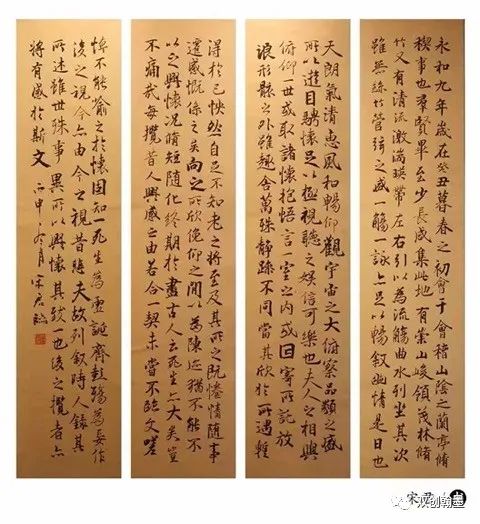 永和九年歲在癸丑暮春之初會于會稽山陰之蘭亭脩
禊事也羣賢畢至少長咸集此地有崇山峻領茂林脩
竹又有清流激湍暎帶左右引以為流觴曲水列坐其次
雖無絲竹管絃之盛一觴一詠亦足以暢敘幽情是日也
天朗氣清惠風和暢仰觀宇宙之大俯察品類之盛
所以遊目騁懷足以極視聽之娛信可樂也夫人之相與
俯仰一世或取諸懷抱悟言一室之內或因寄所託放
浪形骸之外雖趣舍萬殊靜躁不同當其欣於所遇蹔
得於己怏然自足不知老之將至及其所之既惓情隨事
遷感慨係之矣向之所欣俛仰之間以為陳迹猶不能不
以之興懷況脩短隨化終期於盡古人云死生亦大矣豈
不痛哉每攬昔人興感之由若合一契未嘗不臨文嗟
悼不能喻之於懷固知一死生為虛誕齊彭殤為妄作
後之視今亦由今之視昔悲夫故列敘時人錄其
所述雖世殊事異所以興懷其致一也後之攬者亦
將有感於斯文 丙申冬月宋君
宋君
双创翰墨